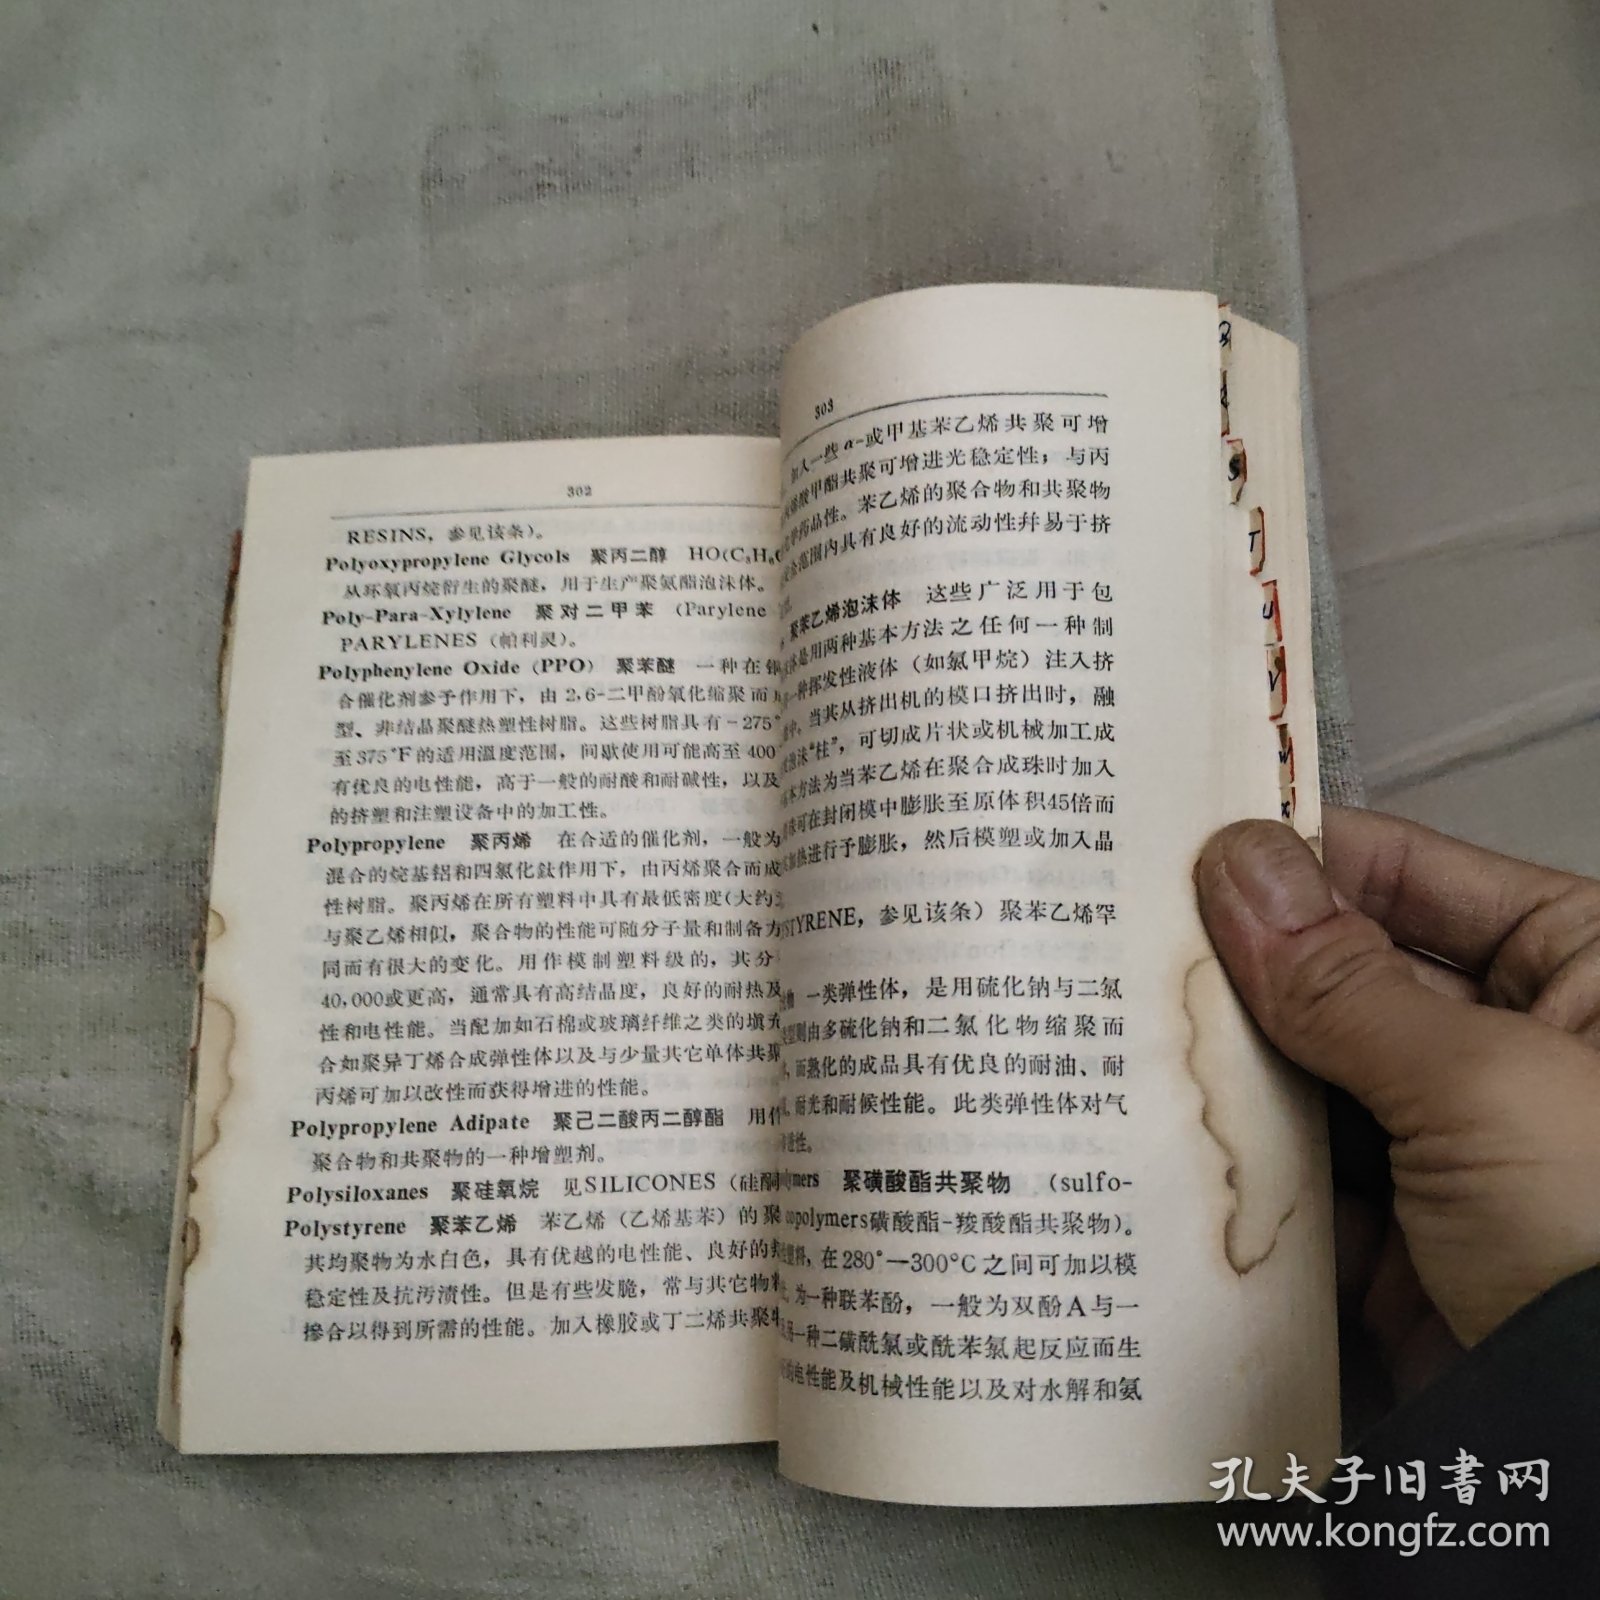 302
RESINS，参见该条）。
Polyoxypropylene Glycols 聚丙二醇 HO(C₃H₆O
从环氧丙烷衍生的聚醚，用于生产聚氨酯泡沫体。
Poly-Para-Xylylene 聚对二甲苯 (Parylene
PARYLENES（帕利灵）。
Polyphenylene Oxide (PPO) 聚苯醚 一种在铜
合催化剂参予作用下，由2,6-二甲酚氧化缩聚而
型、非结晶聚醚热塑性树脂。这些树脂具有-275°
至375°F的适用温度范围，间歇使用可能高至400
有优良的电性能，高于一般的耐酸和耐碱性，以及
的挤塑和注塑设备中的加工性。
Polypropylene 聚丙烯 在合适的催化剂，一般为
混合的烷基铝和四氯化鈦作用下，由丙烯聚合而成
性树脂。聚丙烯在所有塑料中具有最低密度(大约
与聚乙烯相似，聚合物的性能可随分子量和制备方
同而有很大的变化。用作模制塑料级的，其分
40,000或更高，通常具有高结晶度，良好的耐热及
性和电性能。当配加如石棉或玻璃纤维之类的填充
合如聚异丁烯合成弹性体以及与少量其它单体共聚
丙烯可加以改性而获得增进的性能。
Polypropylene Adipate 聚己二酸丙二醇酯 用作
聚合物和共聚物的一种增塑剂。
Polysiloxanes 聚硅氧烷 见SILICONES（硅酮
Polystyrene 聚苯乙烯 苯乙烯（乙烯基苯）的聚
其均聚物为水白色，具有优越的电性能、良好的
稳定性及抗污渍性。但是有些发脆，常与其它物料
掺合以得到所需的性能。加入橡胶或丁二烯共聚
303
加入一些α-或甲基苯乙烯共聚可增
烯酸甲酯共聚可增进光稳定性；与丙
化学药品性。苯乙烯的聚合物和共聚物
范围内具有良好的流动性幷易于挤
聚苯乙烯泡沫体 这些广泛用于包
是用两种基本方法之任何一种制
一种挥发性液体（如氯甲烷）注入挤
中，当其从挤出机的模口挤出时，融
泡沫“柱”，可切成片状或机械加工成
本方法为当苯乙烯在聚合成珠时加入
珠可在封闭模中膨胀至原体积45倍而
加热进行予膨胀，然后模塑或加入晶
STYRENE，参见该条）聚苯乙烯罕
一类弹性体，是用硫化钠与二氯
则由多硫化钠和二氯化物缩聚而
，而熟化的成品具有优良的耐油、耐
、耐光和耐候性能。此类弹性体对气
性。
mers 聚磺酸酯共聚物 (sulfo-
copolymers磺酸酯-羧酸酯共聚物)。
塑料，在280°—300°C之间可加以模
为一种联苯酚，一般为双酚A与一
一种二磺酰氯或酰苯氯起反应而生
的电性能及机械性能以及对水解和氨
S
T
U
V
W
X
孔夫子旧書网
www.kongfz.com